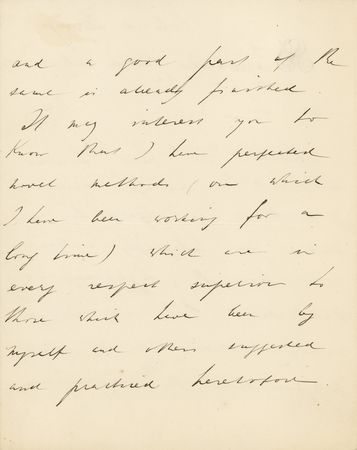 and a good part of the
same is already finished.
It may interest you to
know that I have perfected
novel methods (on which
I have been working for a
long time) which are in
every respect superior to
those which have been by
myself and others suggested
and practiced heretofore.